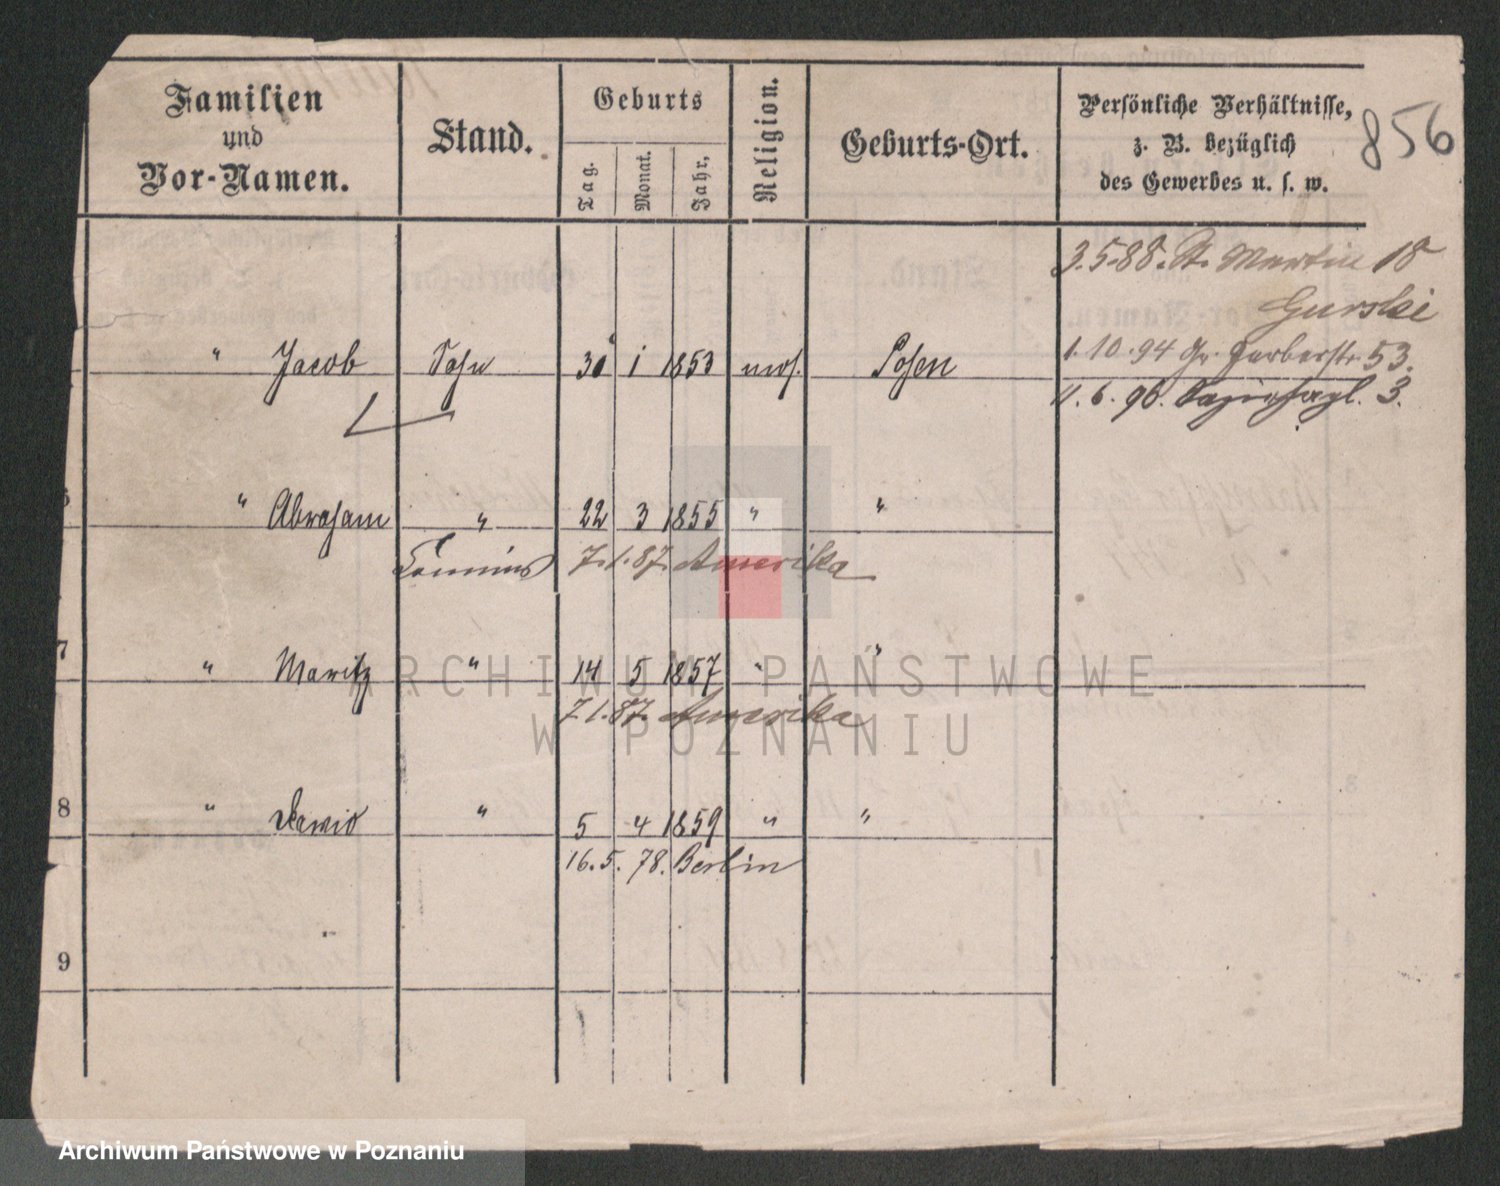 Familien und Vor-Namen.
Stand.
Geburts
Tag.
Monat.
Jahr.
Religion.
Geburts-Ort.
Persönliche Verhältnisse,
z. B. bezüglich
des Gewerbes u. s. w.
856
3.5.88. St. Martin 18
Gurski
" Jacob Sohn 30 1 1853 mos. Posen
1.10.94 Gr. Gerberstr. 53.
11.6.96. 3.
" Abraham " 22 3 1855 " "
Commis 7.1.87. Amerika
7 " Moritz " 14 5 1857 " "
7.1.87. Amerika
8 " Dawid " 5 4 1859 " "
16.5.78. Berlin
9
ARCHIWUM PAŃSTWOWE
W POZNANIU
Archiwum Państwowe w Poznaniu